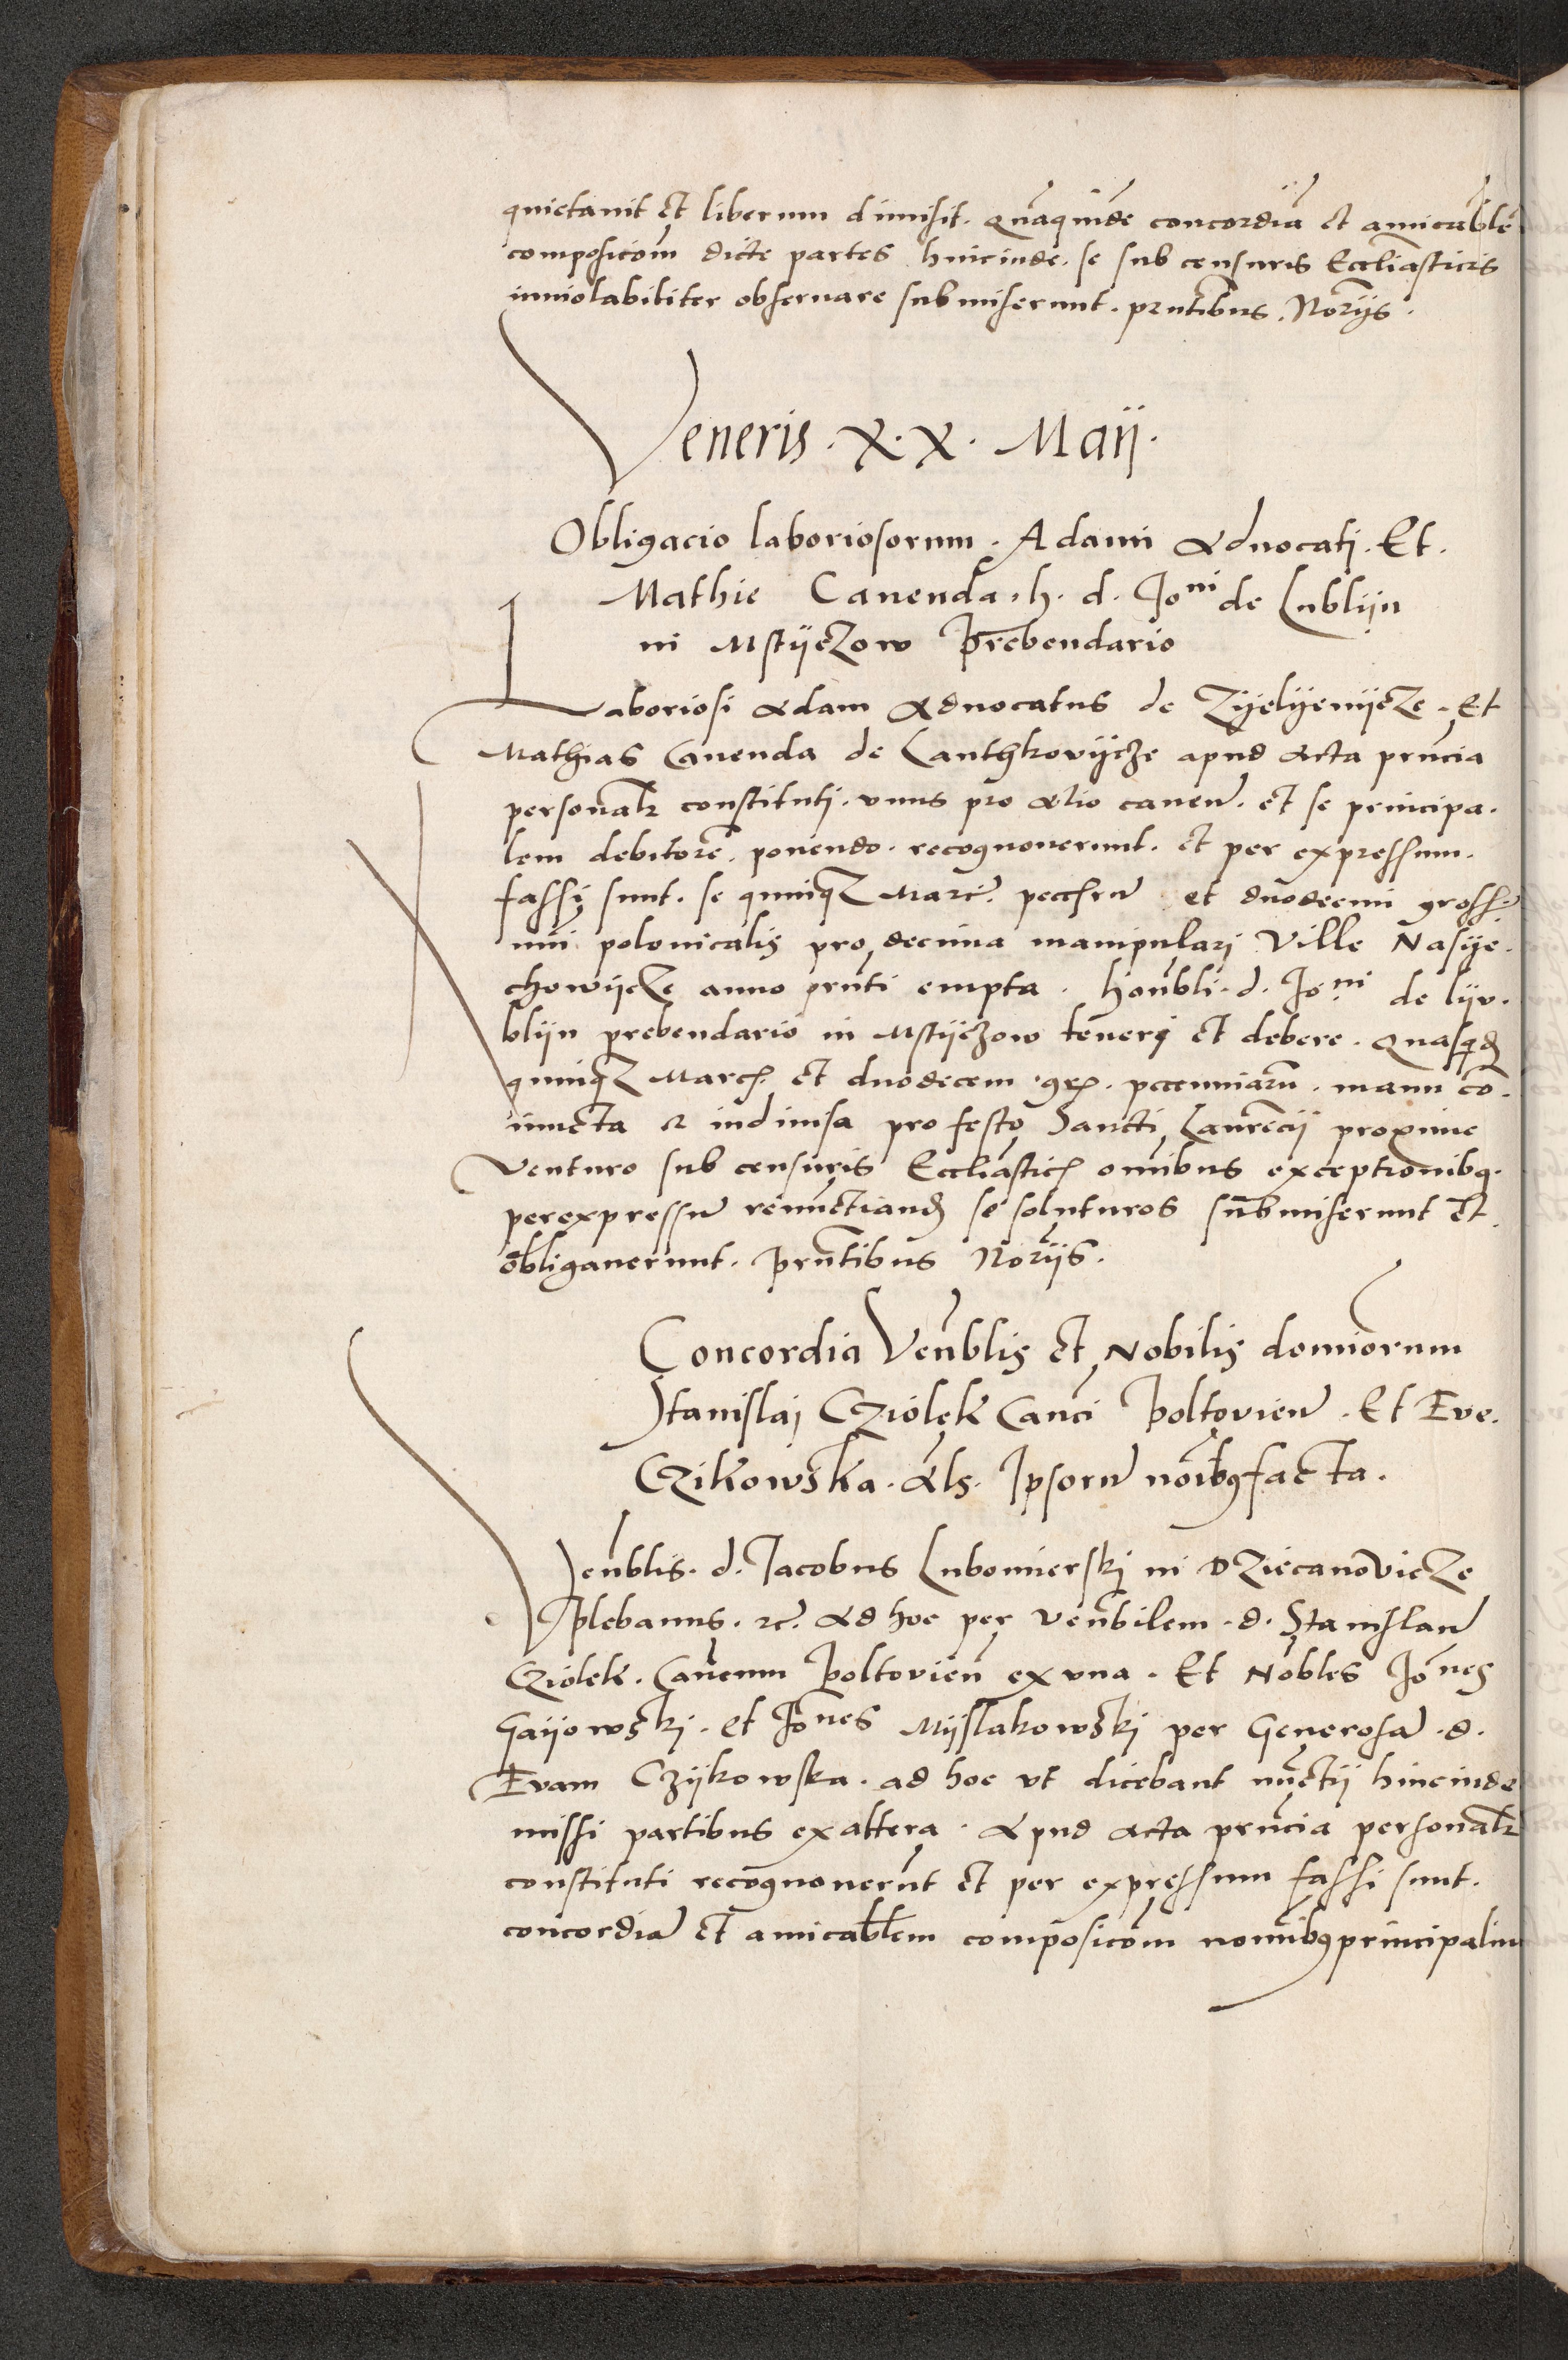 quietauit et liberum dimisit. Qua͂quide͂ concordia͂ et amicable͂
composico͂m dicte partes hincinde. se sub censuris Eccl͂iasticis
inuiolabiliter obseruare submiserunt. prn͂tibus. Nor͂ijs.
Veneris . X . X . Maij .
Obligacio laboriosorum . Adami Aduocati . Et .
Mathie Cauenda . h . d . Joni de Lublijn
in Mstijczow Prebendario
Laboriosi Adam Aduocatus de Zijelijenijcze . Et
Mathias Cauenda de Lanthkovijcze apud Acta prn͂cia
personalr͂ constituti . vnus pro Alio cauen͂ . et se principa .
lem debitore͂ . ponendo . recognouerunt . et per expressum .
fassi sunt . se quinqz Marc͂ . peccsrn͂ et duodecim gross͂ .
nu͂i polonicalis pro decima manipulari Ville Nasije .
chowijcze anno prn͂ti empta . Hon͂bli . d . Joni de lijv .
blijn prebendario in Mstijczow teneri et debere . Quasqd͂
quinqz March͂ . et duodecem . gr͂ . peccuniaru͂ . manu co͂ .
iuncta & indiuisa pro festo Sancti Laurencij proxime
Venturo sub censuris Eccl͂iastich͂ om͂ibus exceptionibq .
perexpressu͂ renu͂ctiand͂ se soluturos submiserunt et
obligauerunt . prn͂tibus Nor͂ijs .
Concordia Ven͂blis et Nobilis dominorum
Stanislai Cziolek Can͂ci Poltovien͂ . Et Eve .
Czikowska . Als . Ipsoru͂ no͂ibq facta .
Ven͂blis . d . Jacobus Lubomierski in Dziecanovicze
plebanus . &c͂ . Ad hoc per Ven͂bilem . d . Stanislau͂
Cziolek . Can͂cum Poltovien͂ ex vna . Et Nobles Jo͂nes
Gaijowski . et Jo͂nes Mijslakowski per Generosa͂ . d .
Evam Czijkowska . ad hoc vt dicebant nu͂ctij hincinde
missi partibus exaltera . Apud Acta prn͂cia personalr͂
constituti recognoueru͂t et per expressum fassi sunt .
concordia͂ et amicablem composico͂m nom͂ibq principaliu͂